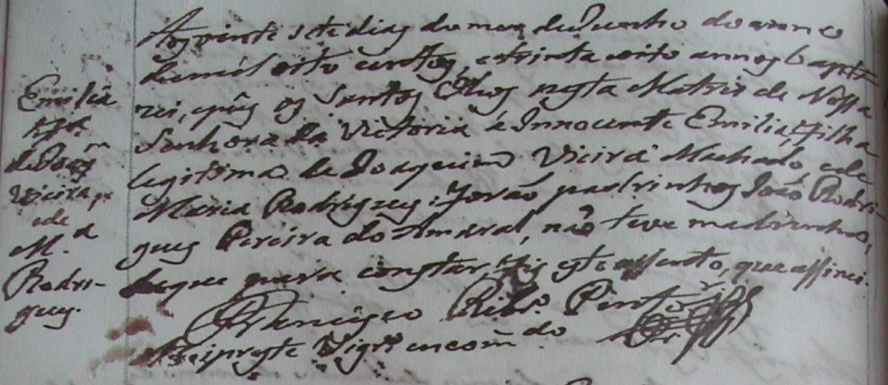 Emilia
fª
de Joaqm
Vieira,
e de
M.a
Rodri-
gues.
Aos vinte sete dias do mez de Junho do anno
de mil oito centos, e trinta e oito annos bapti-
zei, e puz os Santos Oleos nesta Matris de Nossa
Senhora da Victoria a Innocente Emilia, Filha
legitima de Joaquim Vieira Machado, e de
Maria Rodrigues: Forão padrinhos João Rodri-
gues Pereira do Amaral, não teve madrinha,
de que para constar, fiz este assento, que assinei.
Francisco Ribr.o
Arcipreste Vigr.o encom.do